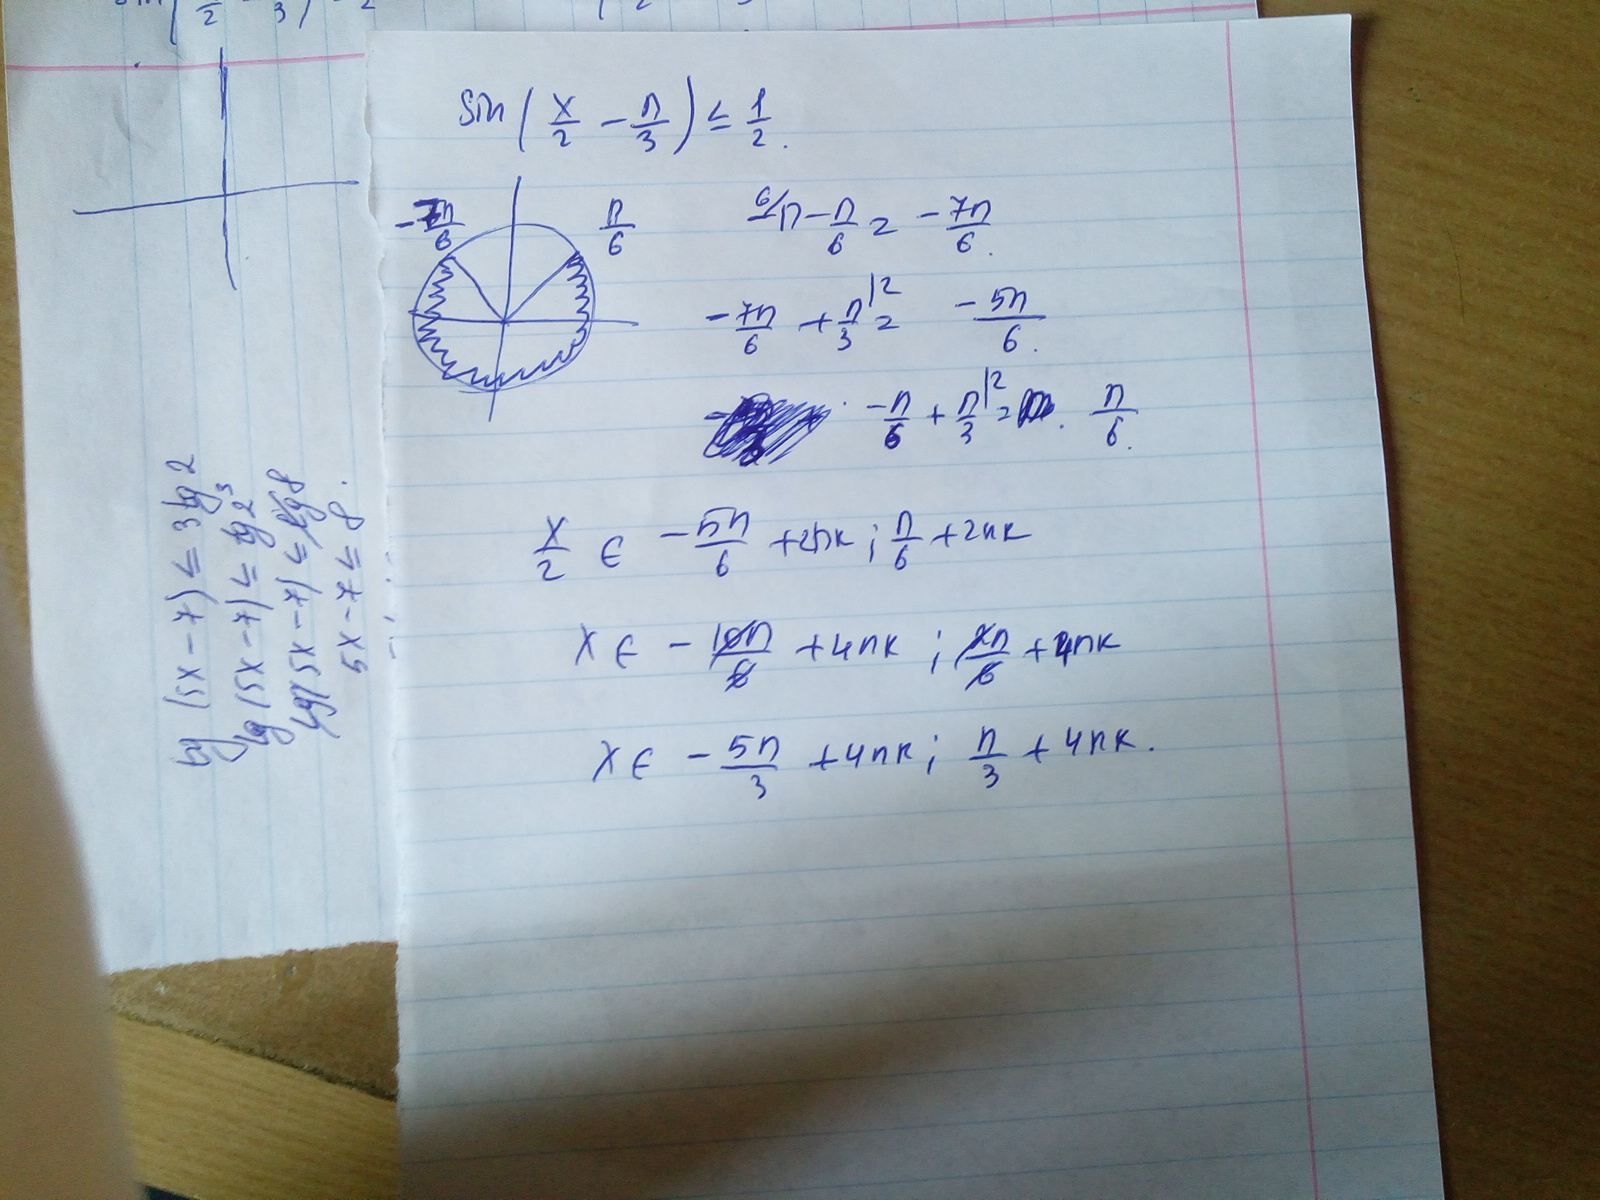 sin(x/2 - π/3) ≤ 1/2.
-7π/6
π/6
-π - π/6 = -7π/6.
-7π/6 + π/3|2 = -5π/6.
-π/6 + π/3|2 = π/6.
x/2 ∈ -5π/6 + 2πk; π/6 + 2πk
x ∈ -10π/6 + 4πk; 2π/6 + 4πk
x ∈ -5π/3 + 4πk; π/3 + 4πk.
lg(5x-7) ≤ 3lg2
lg(5x-7) ≤ lg2³
lg(5x-7) ≤ lg8
5x-7 ≤ 8.